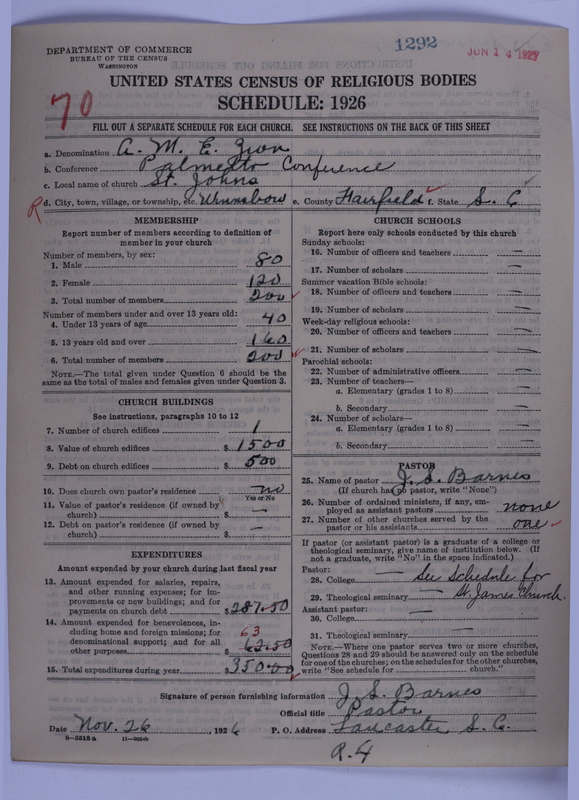 DEPARTMENT OF COMMERCE
BUREAU OF THE CENSUS
WASHINGTON
1292
JUN 14 1927
UNITED STATES CENSUS OF RELIGIOUS BODIES
SCHEDULE: 1926
70
FILL OUT A SEPARATE SCHEDULE FOR EACH CHURCH. SEE INSTRUCTIONS ON THE BACK OF THIS SHEET
a. Denomination A. M. E. Zion
b. Conference Palmetto Conference
c. Local name of church St. Johns
R d. City, town, village, or township, etc. Winnsboro e. County Fairfield f. State S. C
MEMBERSHIP
Report number of members according to definition of
member in your church
Number of members, by sex:
1. Male 80
2. Female 120
3. Total number of members 200
Number of members under and over 13 years old:
4. Under 13 years of age 40
5. 13 years old and over 160
6. Total number of members 200
NOTE.—The total given under Question 6 should be the
same as the total of males and females given under Question 3.
CHURCH BUILDINGS
See instructions, paragraphs 10 to 12
7. Number of church edifices 1
8. Value of church edifices $ 1500
9. Debt on church edifices $ 500
10. Does church own pastor's residence no
Yes or No
11. Value of pastor's residence (if owned by
church) $ —
12. Debt on pastor's residence (if owned by
church) $ —
EXPENDITURES
Amount expended by your church during last fiscal year
13. Amount expended for salaries, repairs,
and other running expenses; for im-
provements or new buildings; and for
payments on church debt $ 287.50
14. Amount expended for benevolences, in-
cluding home and foreign missions; for
denominational support; and for all 63
other purposes $ 62.50
15. Total expenditures during year $ 350.00
CHURCH SCHOOLS
Report here only schools conducted by this church
Sunday schools:
16. Number of officers and teachers —
17. Number of scholars —
Summer vacation Bible schools:
18. Number of officers and teachers —
19. Number of scholars —
Week-day religious schools:
20. Number of officers and teachers —
21. Number of scholars —
Parochial schools:
22. Number of administrative officers —
23. Number of teachers—
a. Elementary (grades 1 to 8) —
b. Secondary —
24. Number of scholars—
a. Elementary (grades 1 to 8) —
b. Secondary —
PASTOR
25. Name of pastor J. S. Barnes
(If church has no pastor, write "None")
26. Number of ordained ministers, if any, em-
ployed as assistant pastors none
27. Number of other churches served by the
pastor or his assistants one
If pastor (or assistant pastor) is a graduate of a college or
theological seminary, give name of institution below. (If
not a graduate, write "No" in the space indicated.)
Pastor:
28. College — See Schedule for
29. Theological seminary — St. James Church.
Assistant pastor:
30. College —
31. Theological seminary —
NOTE.—Where one pastor serves two or more churches,
Questions 28 and 29 should be answered only on the schedule
for one of the churches; on the schedules for the other churches,
write "See schedule for church."
Signature of person furnishing information J. S. Barnes
Official title Pastor
Date Nov. 26, 1926 P. O. Address Lancaster S. C.
R. 4